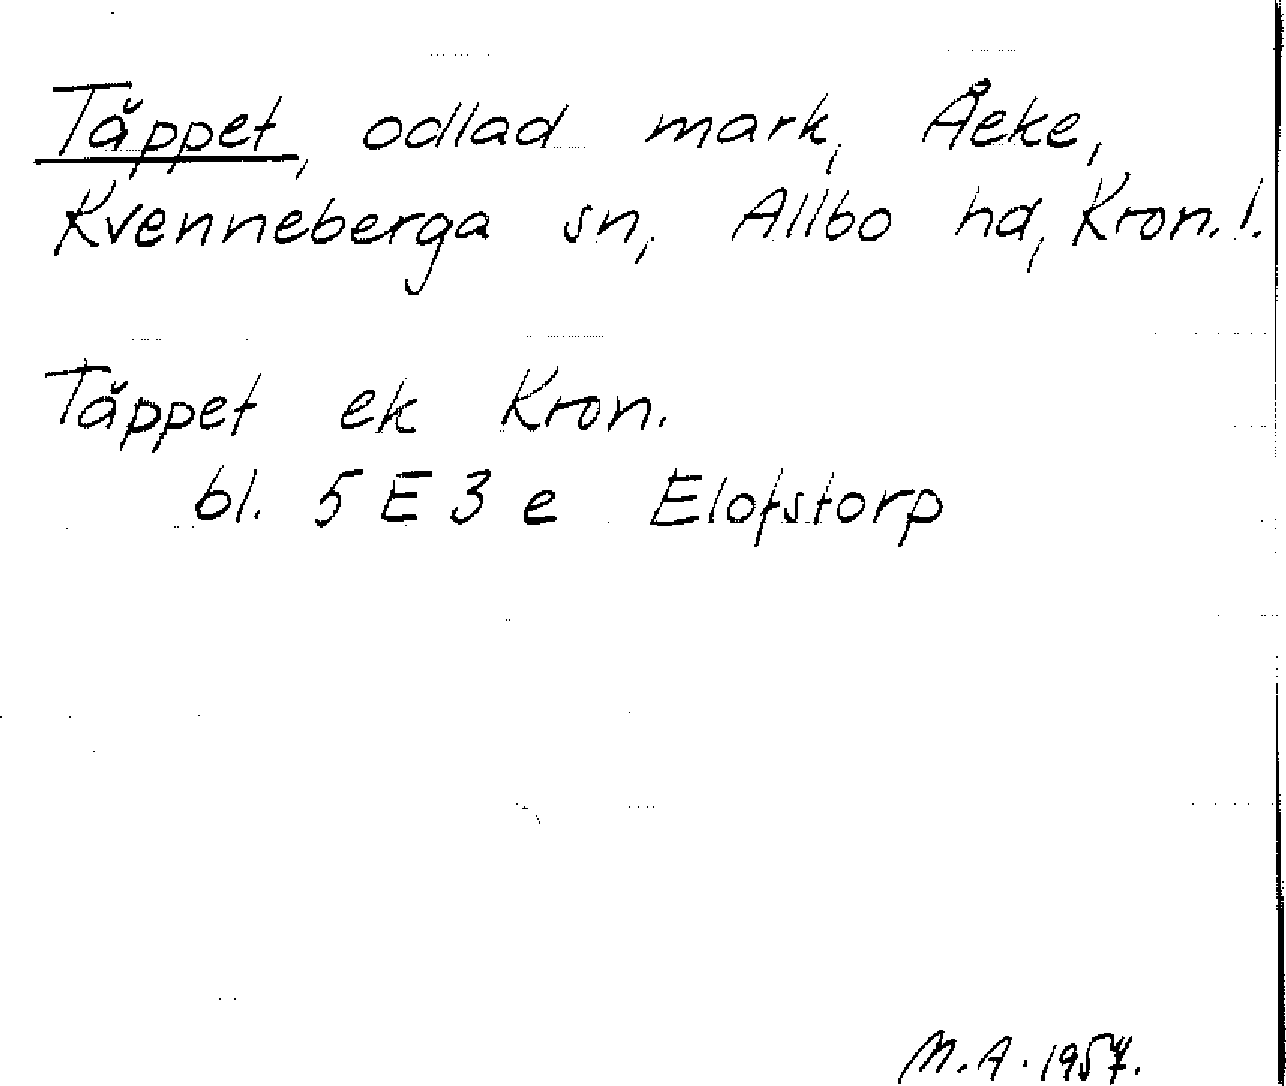 Täppet, odlad mark, Åeke,
Kvenneberga sn, Allbo hd, Kron. l.
Täppet ek Kron.
bl. 5 E 3 e Elofstorp
M.A. 1957.